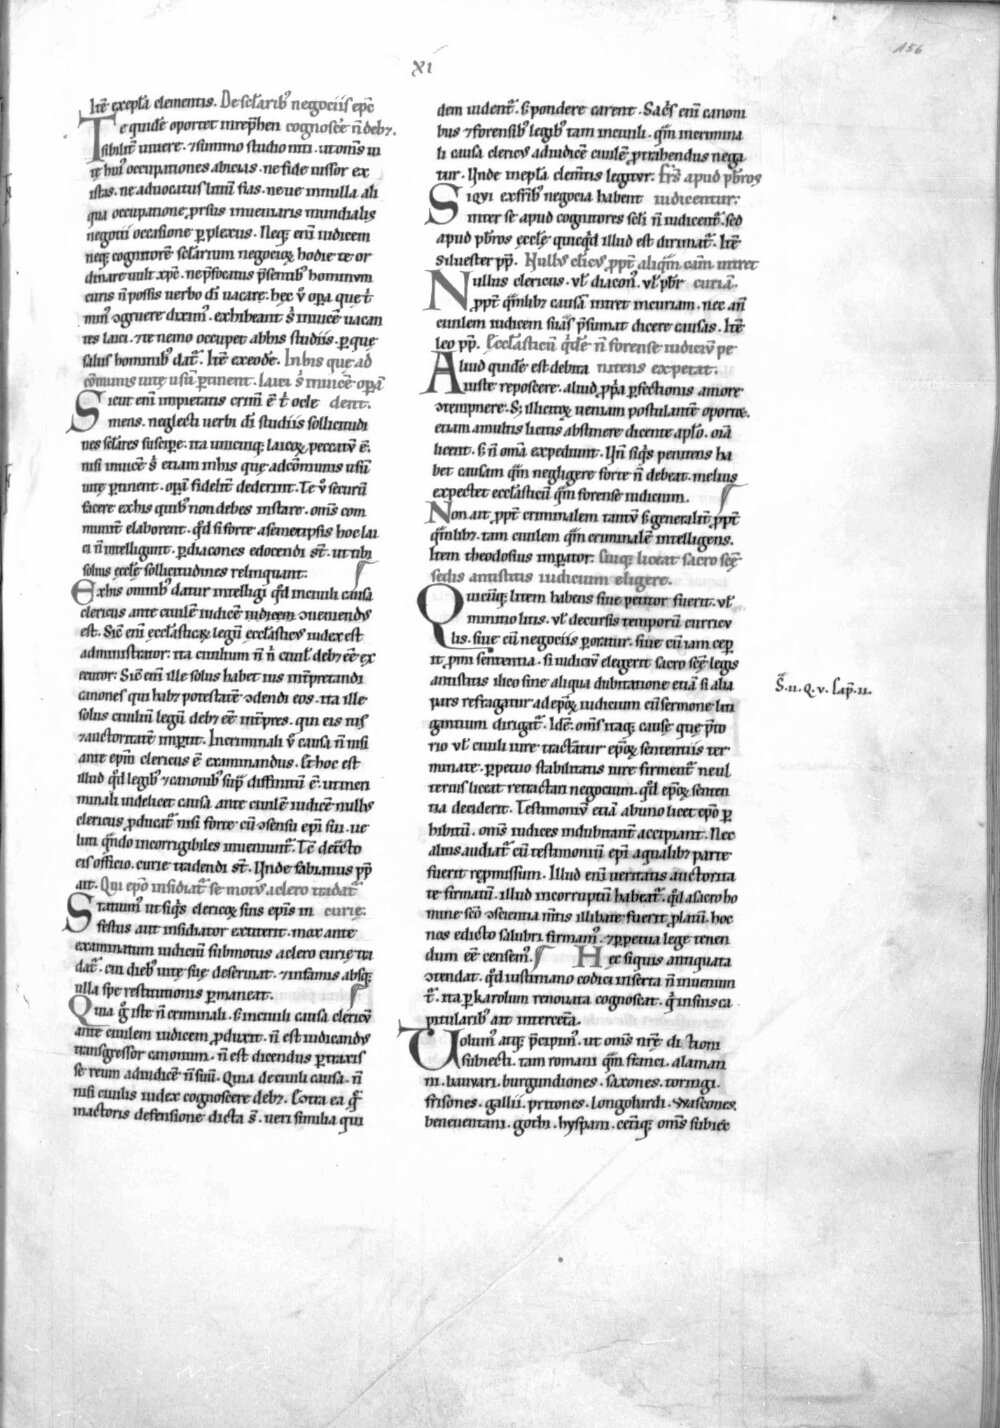 156
XI
Itē exepła clementis. De sełarib᷒ negociis epc̄
Te quidē oportet inrep̄hen cognoscē n̄ deb3.
sibilit̄ uiuere. ⁊ summo studio niti. ut om̄s ui
tę hui᷒ occupationes abicias. ne fide iussor ex
istas. ne aduocatus litiū fias. ne ue in ulla ali
qua occupatione p̱rsus inueniaris mundialis
negotii occasione ꝑplexus. Neq; eni᷒ iudicem
neq; cognitorē sełarium negocioꝝ hodie te or
dinare uult xp̄c. ne p̄focatus p̄sentib᷒ hominum
curis n̄ possis uerbo dī uacare.
salus hominib᷒ dat᷑. Itē exeodē. In his que ad
cōmunis uitę usū ꝑtinent. laici s᷒ inuicē opā
Sicut eni᷒ impietatis crim̄ ē t᷒ ocle dent.
mens. neglecti uerbi dī studiis sollicitudi
nes sełares suscipe. ita unicuiq; laicoꝝ peccatū ē.
nisi inuicē s᷒ etiam in his que ad cōmunis usū
uitę ꝑtinent. opā fidelit̄ dederint. Te u᷒ securū
facere ex his quib᷒ non debes instare. om̄s com
munit̄ elaborent. qd̄ si forte a semetipsis hoc lai
ci n̄ intelligunt. ꝑ diacones edocendi st̄. ut tibi
solius ecclę sollicitudines relinquant.
Ex his omnib᷒ datur intelligi qd̄ in ciuili causa
clericus ante ciuilē iudicē iudicem ꝯueniendus
est. Sic̄ eni᷒ ecclasticaꝝ legū ecclasticus iudex est
administrator. ita ciuilium n̄ n᷒ ciuil᷒ deb3 eē ex
ecutor. Sic̄ eni᷒ ille solus habet ius int̄pretandi
canones qui hab3 potestatē ꝯdendi eos. ita ille
solus ciuiliū legū deb3 eē int̄pres. qui eis ius
⁊ auctoritatē imꝑtit. In criminali u᷒ causa n̄ nisi
ante epm̄ clericus ē examinandus. Et hoc est
illud qd̄ legib᷒ ⁊ canonib᷒ sup̄ diffinitū ē. ut in cri
minali uidelicet causa ante ciuilē iudicē nullus
clericus ꝓducat᷑. nisi forte cū ꝯsensu epi sui. ue
luti qn̄do incorrigibiles inueniunt᷑. Tē det᷒cto
eis officio. curie tradendi st̄. Vnde fabianus pp̄
ait. Qui epo insidiat᷑ se motus a clero tradat᷑
Statuim᷒ ut siq̄s clericoꝝ suis ep̄is in curię.
festus aut insidiator extiterit. mox ante
examinatum iudiciū submotus a clero curię tra
dat᷑. cui dieb᷒ uitę suę deseruiat. ⁊ infamis absq;
ulla spe restitutionis ꝑmaneat.
Quia g᷒ iste n̄ criminali. s᷒ in ciuili causa clericū
ante ciuilem iudicem ꝓduxit. n̄ est iudicandus
transgressor canonum. n̄ est dicendus ꝑtraxis
se reum ad iudicē n̄ suū. Quia de ciuili causa. n̄
nisi ciuilis iudex cognoscere deb3. Cōtra ea q᷒
in actoris defensione dicta s̄. ueri similia qui
dem uident᷑. s᷒ pondere carent. Sac̄s eni᷒ canoni
bus ⁊ forensib᷒ legib᷒ tam in ciuili. qm̄ in crimina
li causa clericus ad iudicē ciuilē ꝑtrahendus nega
tur. Vnde in epła clem̄tis legitur: Frs̄ apud pbros
Siqui ex frib᷒ negocia habent iudicentur:
inter se apud cognitores scłi n̄ iudicent᷑. sed
apud pbros ecclę quicqd̄ illud est dirimat᷑. Itē
siluester pp̄. Nullus clicus ꝓpt̄ aliqm̄ cām intret
Nullus clericus. uł diacon᷒. uł pbr̄ curiā.
ꝓpt̄ qm̄lib3 causā intret in curiam. nec an̄
ciuilem iudicem suas p̄sumat dicere causas. Itē
leo pp̄. Ecclasticū qd̄ē n̄ forense iudiciū pe
Aliud quidē est debita nitens expetat.
iuste reposcere. aliud ꝓpria ꝑfectionis amore
ꝯtempnere. S; illicitoꝝ ueniam postulantē oportet.
etiam a multis licitis abstinere dicente apło. oīa
licent. s᷒ n̄ omīa expediunt. Vn̄ siq̄s penitens ha
bet causam qm̄ negligere forte n̄ debeat. melius
expectet ecclasticū qm̄ forense iudicium.
Non ait ꝓpt̄ criminalem tantū s᷒ generalit̄ ꝓpt̄
qm̄lib3. tam ciuilem qm̄ criminalē intelligens.
Item theodosius imꝑator: Cuiq; liceat sacro sc̄ę
sedis antistitis iudicium eligere.
Quicūq; litem habens siue petitor fuerit. uł
in initio litis. uł decursis temporū curricu
lis. siue cū negociis ꝑoratur. siue cū iam cepit
it ꝓmi sententia. si iudiciū elegerit sacro sc̄ę legis
antistitis ilico sine aliqua dubitatione etiā si alia
pars refragatur ad epoꝝ iudicium cū sermone liti
gantium dirigat᷑. Idē. Om̄s itaq; cause que p̄to
rio uł ciuili iure tractāntur epoꝝ sententiis ter
minate. ꝑpetuo stabilitatis iure firment᷑. ne ul
terius liceat retractari negocium. qd̄ epoꝝ senten
tia deciderit. Testimoniū etiā ab uno licet epo ꝑ
hibitū. om̄s iudices indubitant̄ accipiant. Nec
alius audiat᷑ cū testimoniū epi a qualib3 parte
fuerit rep̱missum. Illud enī ueritatis auctorita
te firmatū. illud incorruptū habeat᷑. qd̄ a sacro ho
mine scō ꝯscientia m̄tis illibate fuerit ꝓlatū. hoc
nos edicto salubri firmam᷒. ⁊ ꝑpetua lege tenen
dum eē censem᷒. Hec siquis antiquata
ꝯtendat. qd̄ iustiniano codici inserta n̄ inueniun
t᷑. ita ꝑ karolum renouata cognoscat. q᷒ in suis ca
pitularib᷒ ait int̄ cetera.
Uolum᷒ atq; p̄cipim᷒. ut om̄s nr̄ę ditioni
subiecti. tam romani qm̄ franci. alaman
ni. bauuari. burgundiones. saxones. toringi.
frisones. gallii. pritones. longobardi. wascones.
beneuentani. gothi. hyspani. ceteriq; om̄s subiec
S̄. II. Q. V. Cap̄. II.